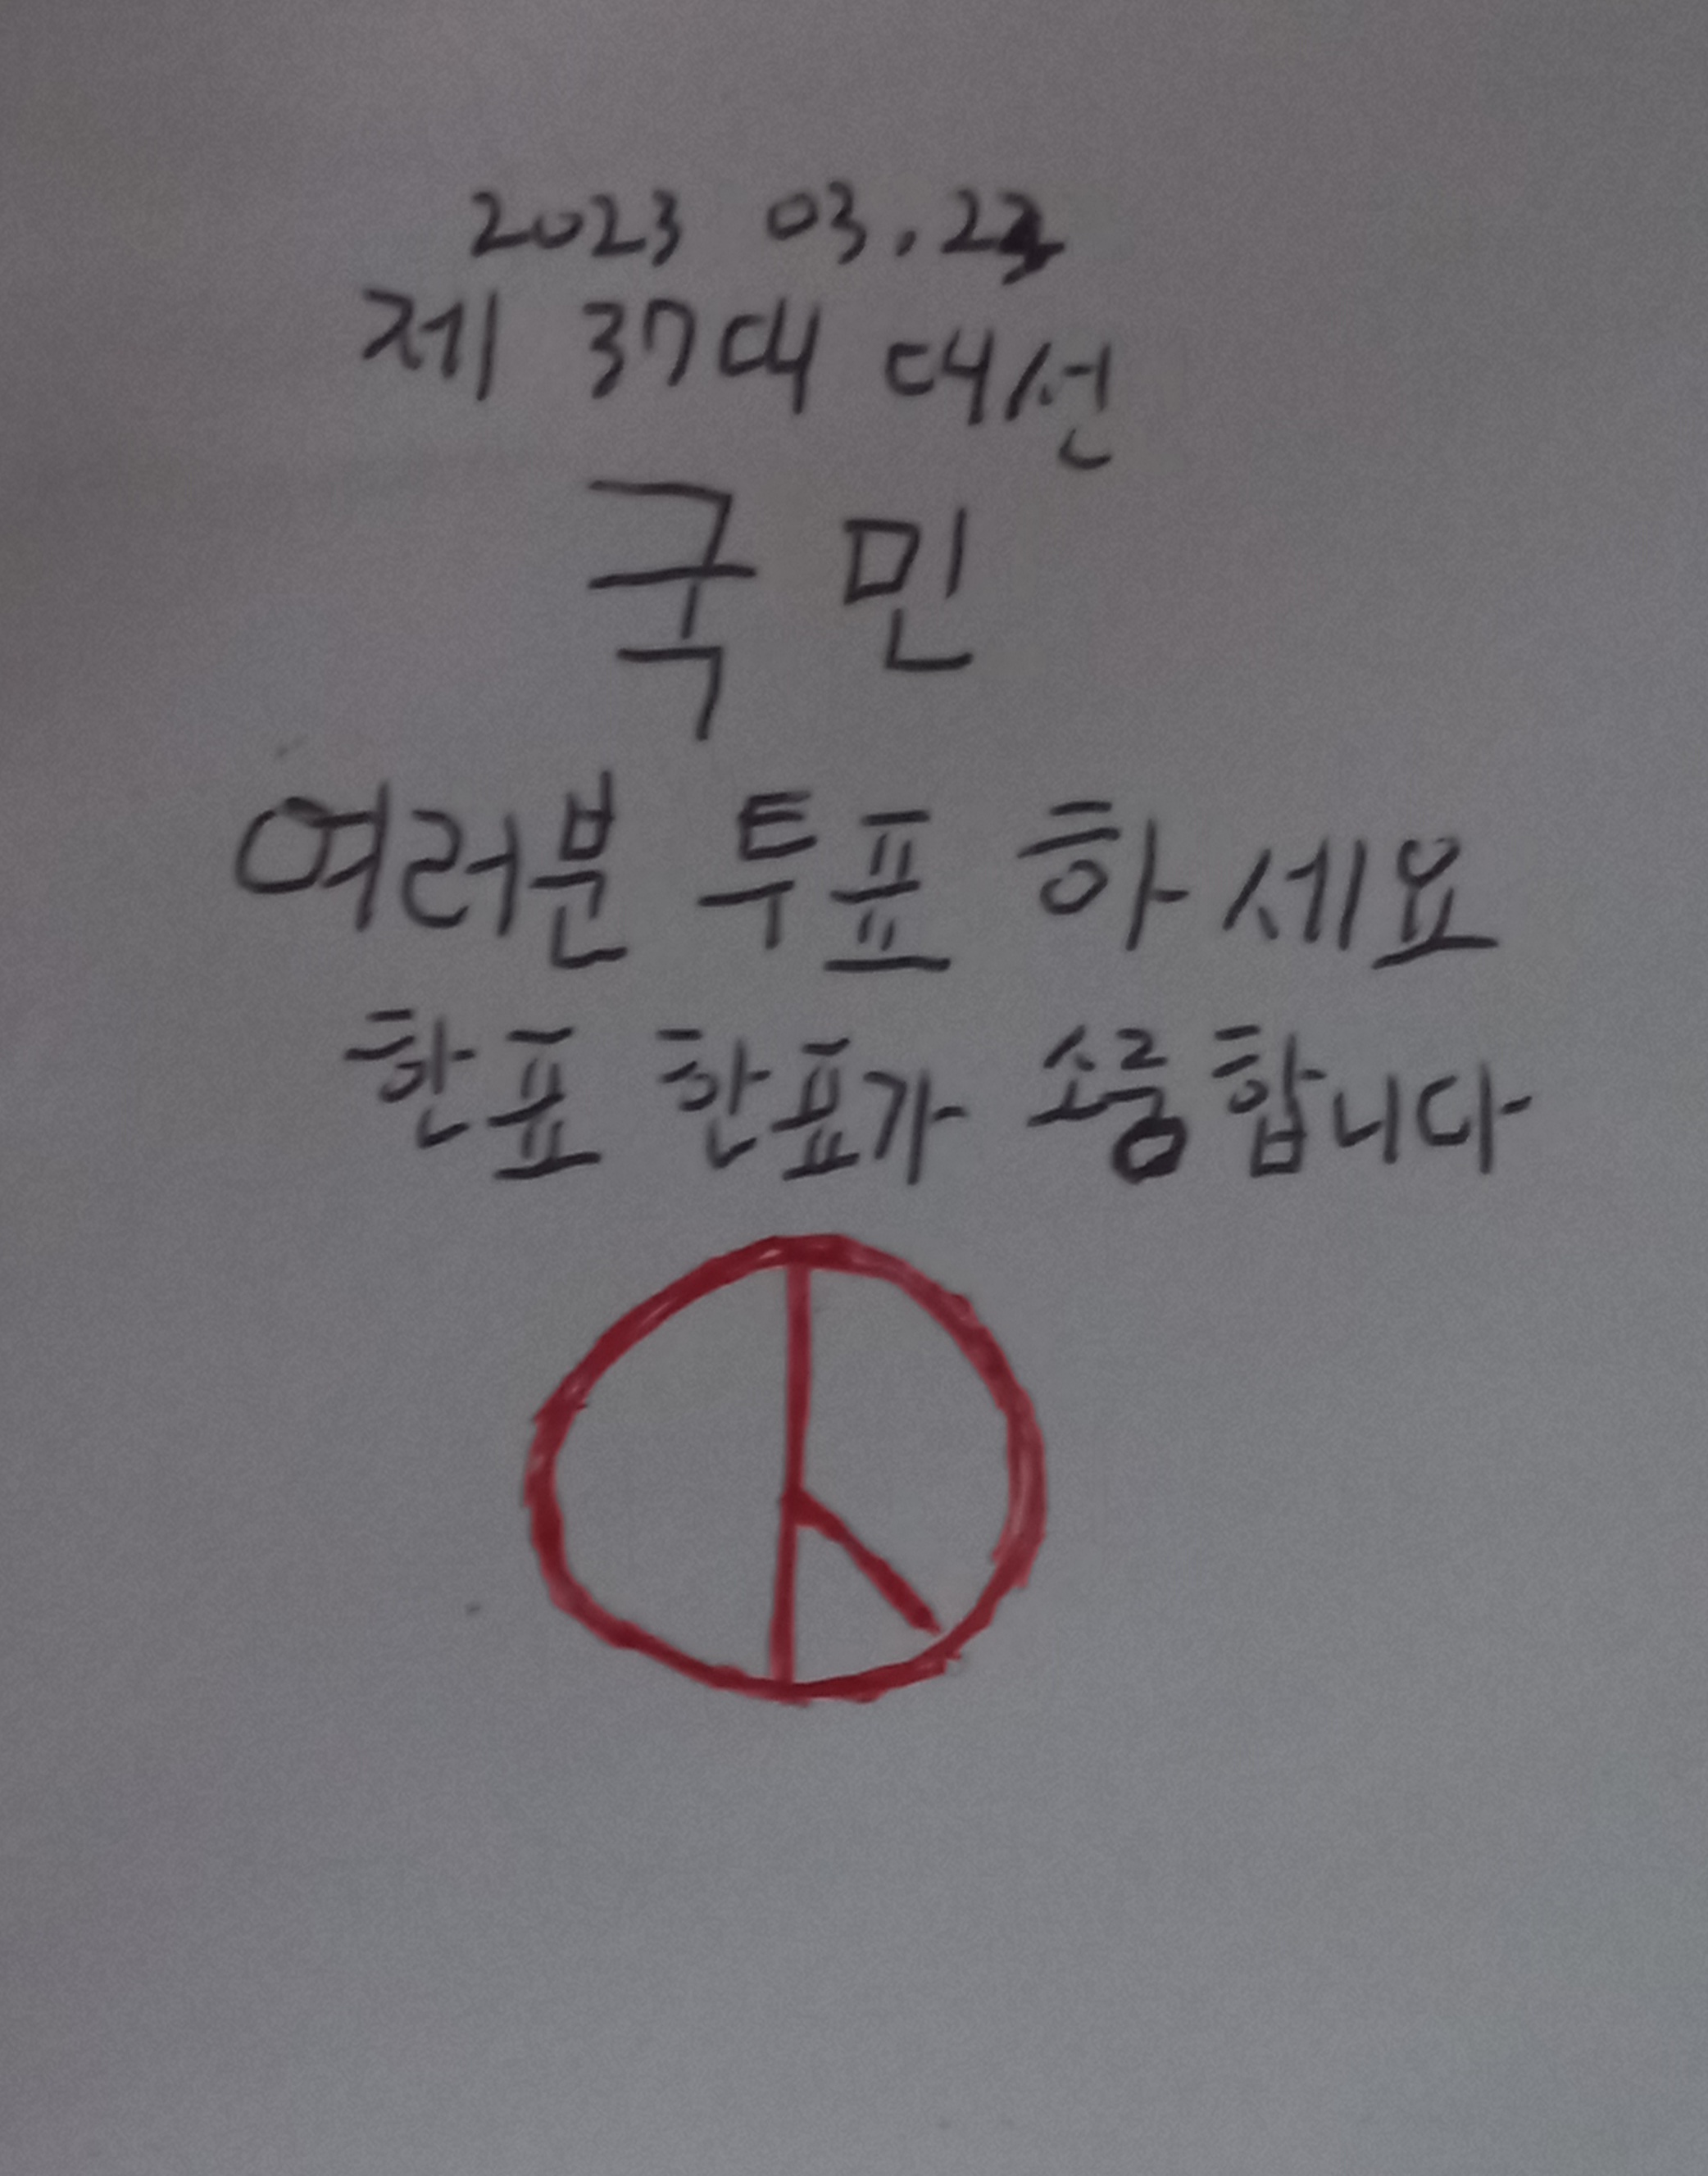 2023 03.23
제 37대 대선
국민
여러분 투표 하세요
한표 한표가 소중합니다